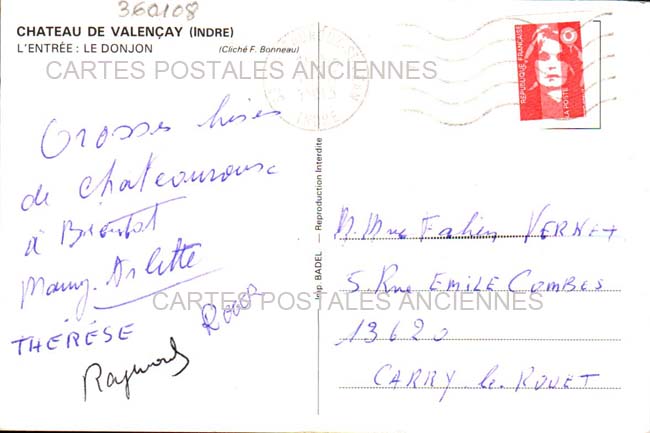 360108
CHATEAU DE VALENÇAY (INDRE)
L'ENTRÉE : LE DONJON (Cliché F. Bonneau)
CARTES POSTALES ANCIENNES
RÉPUBLIQUE FRANÇAISE
LA POSTE
INDRE
Grosses bises
de Chateauroux
à Bientot
Mamy. Arlette
THÉRÈSE ROGER
Raymond
Imp. BADEL — Reproduction Interdite
M. Mme Fabien VERNET
5 Rue EMILE COMBES
13620
CARRY-le-ROUET
CARTES POSTALES ANCIENNES